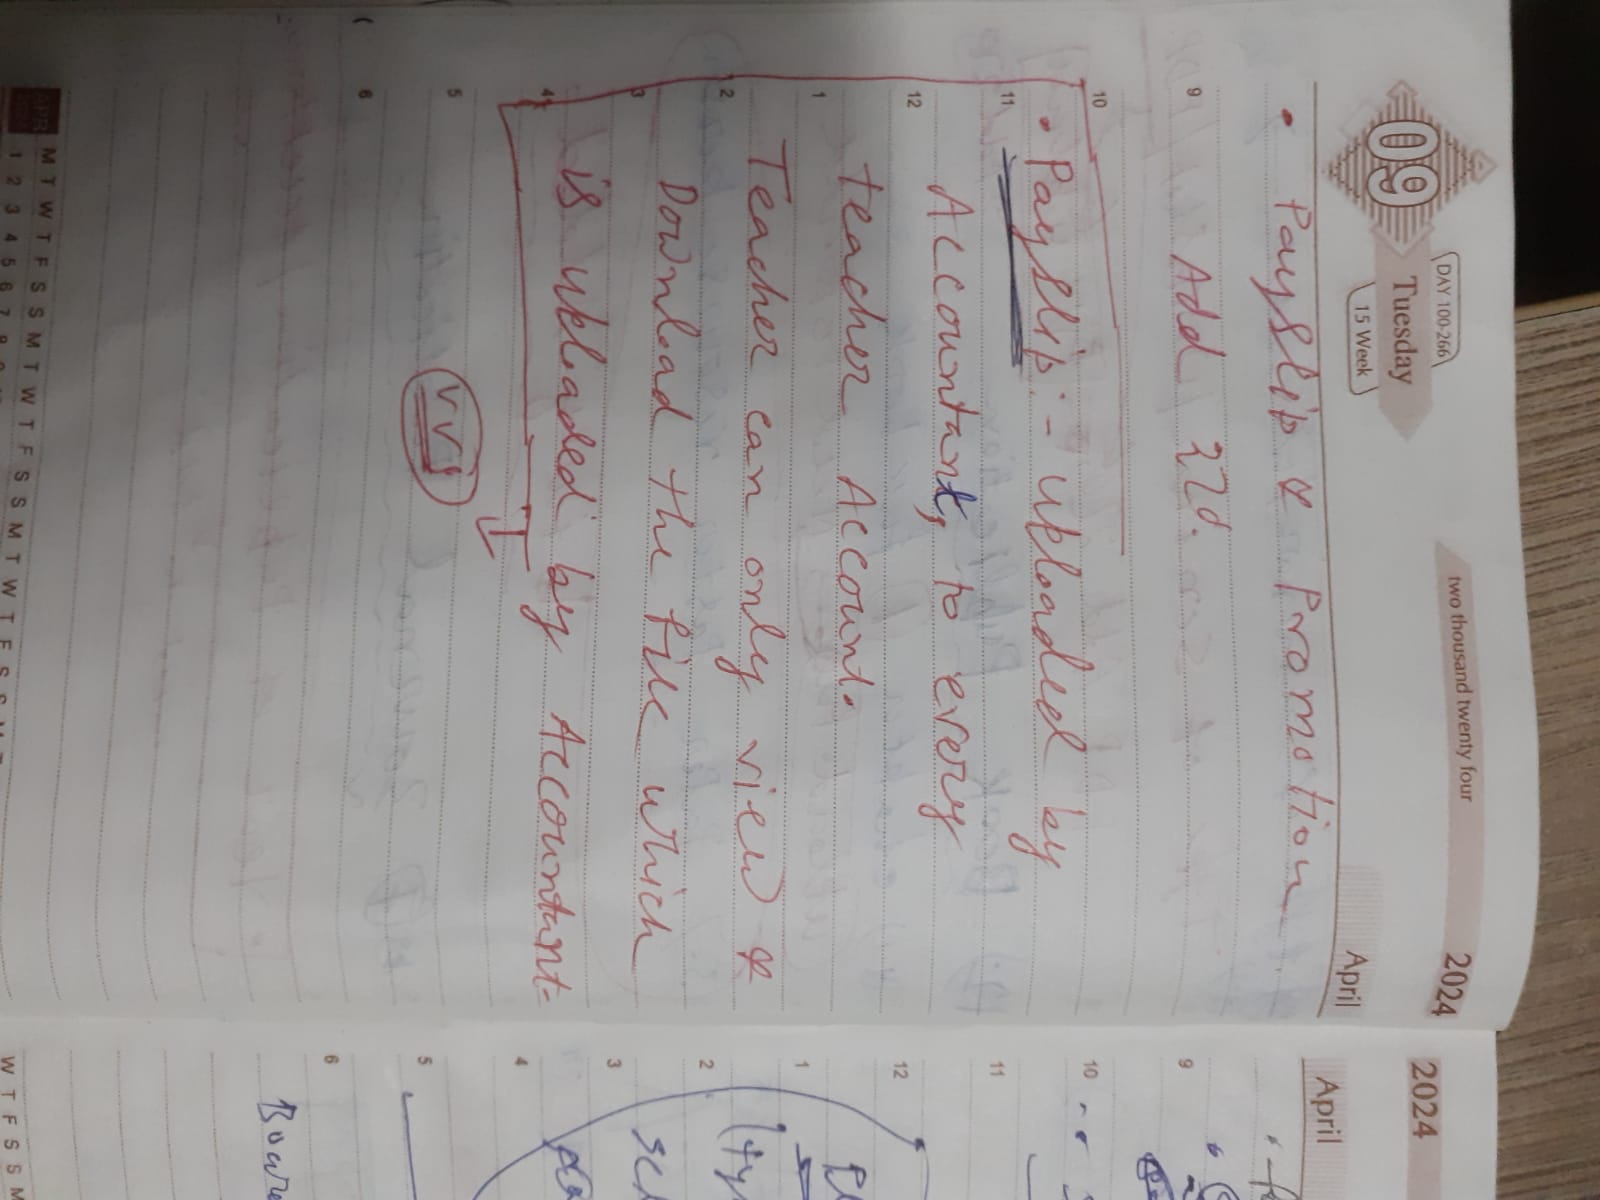 09
DAY 100-266
Tuesday
15 Week
two thousand twenty four
2024
April
• Payslip & Promotion
9 Add
10
• Payslip:- Uploaded by
11
Accountant, to every
12
teacher Account.
1
Teacher can only view &
2
Download the file which
3
is uploaded by Accountant-
4
5 VVI
6
APR
2024
M T W T F S S M T W T F S S M T W T F S S M
1 2 3 4 5 6 7 8
2024
April
9
10
11
12
1
2
3
4
5
6
W T F S S M